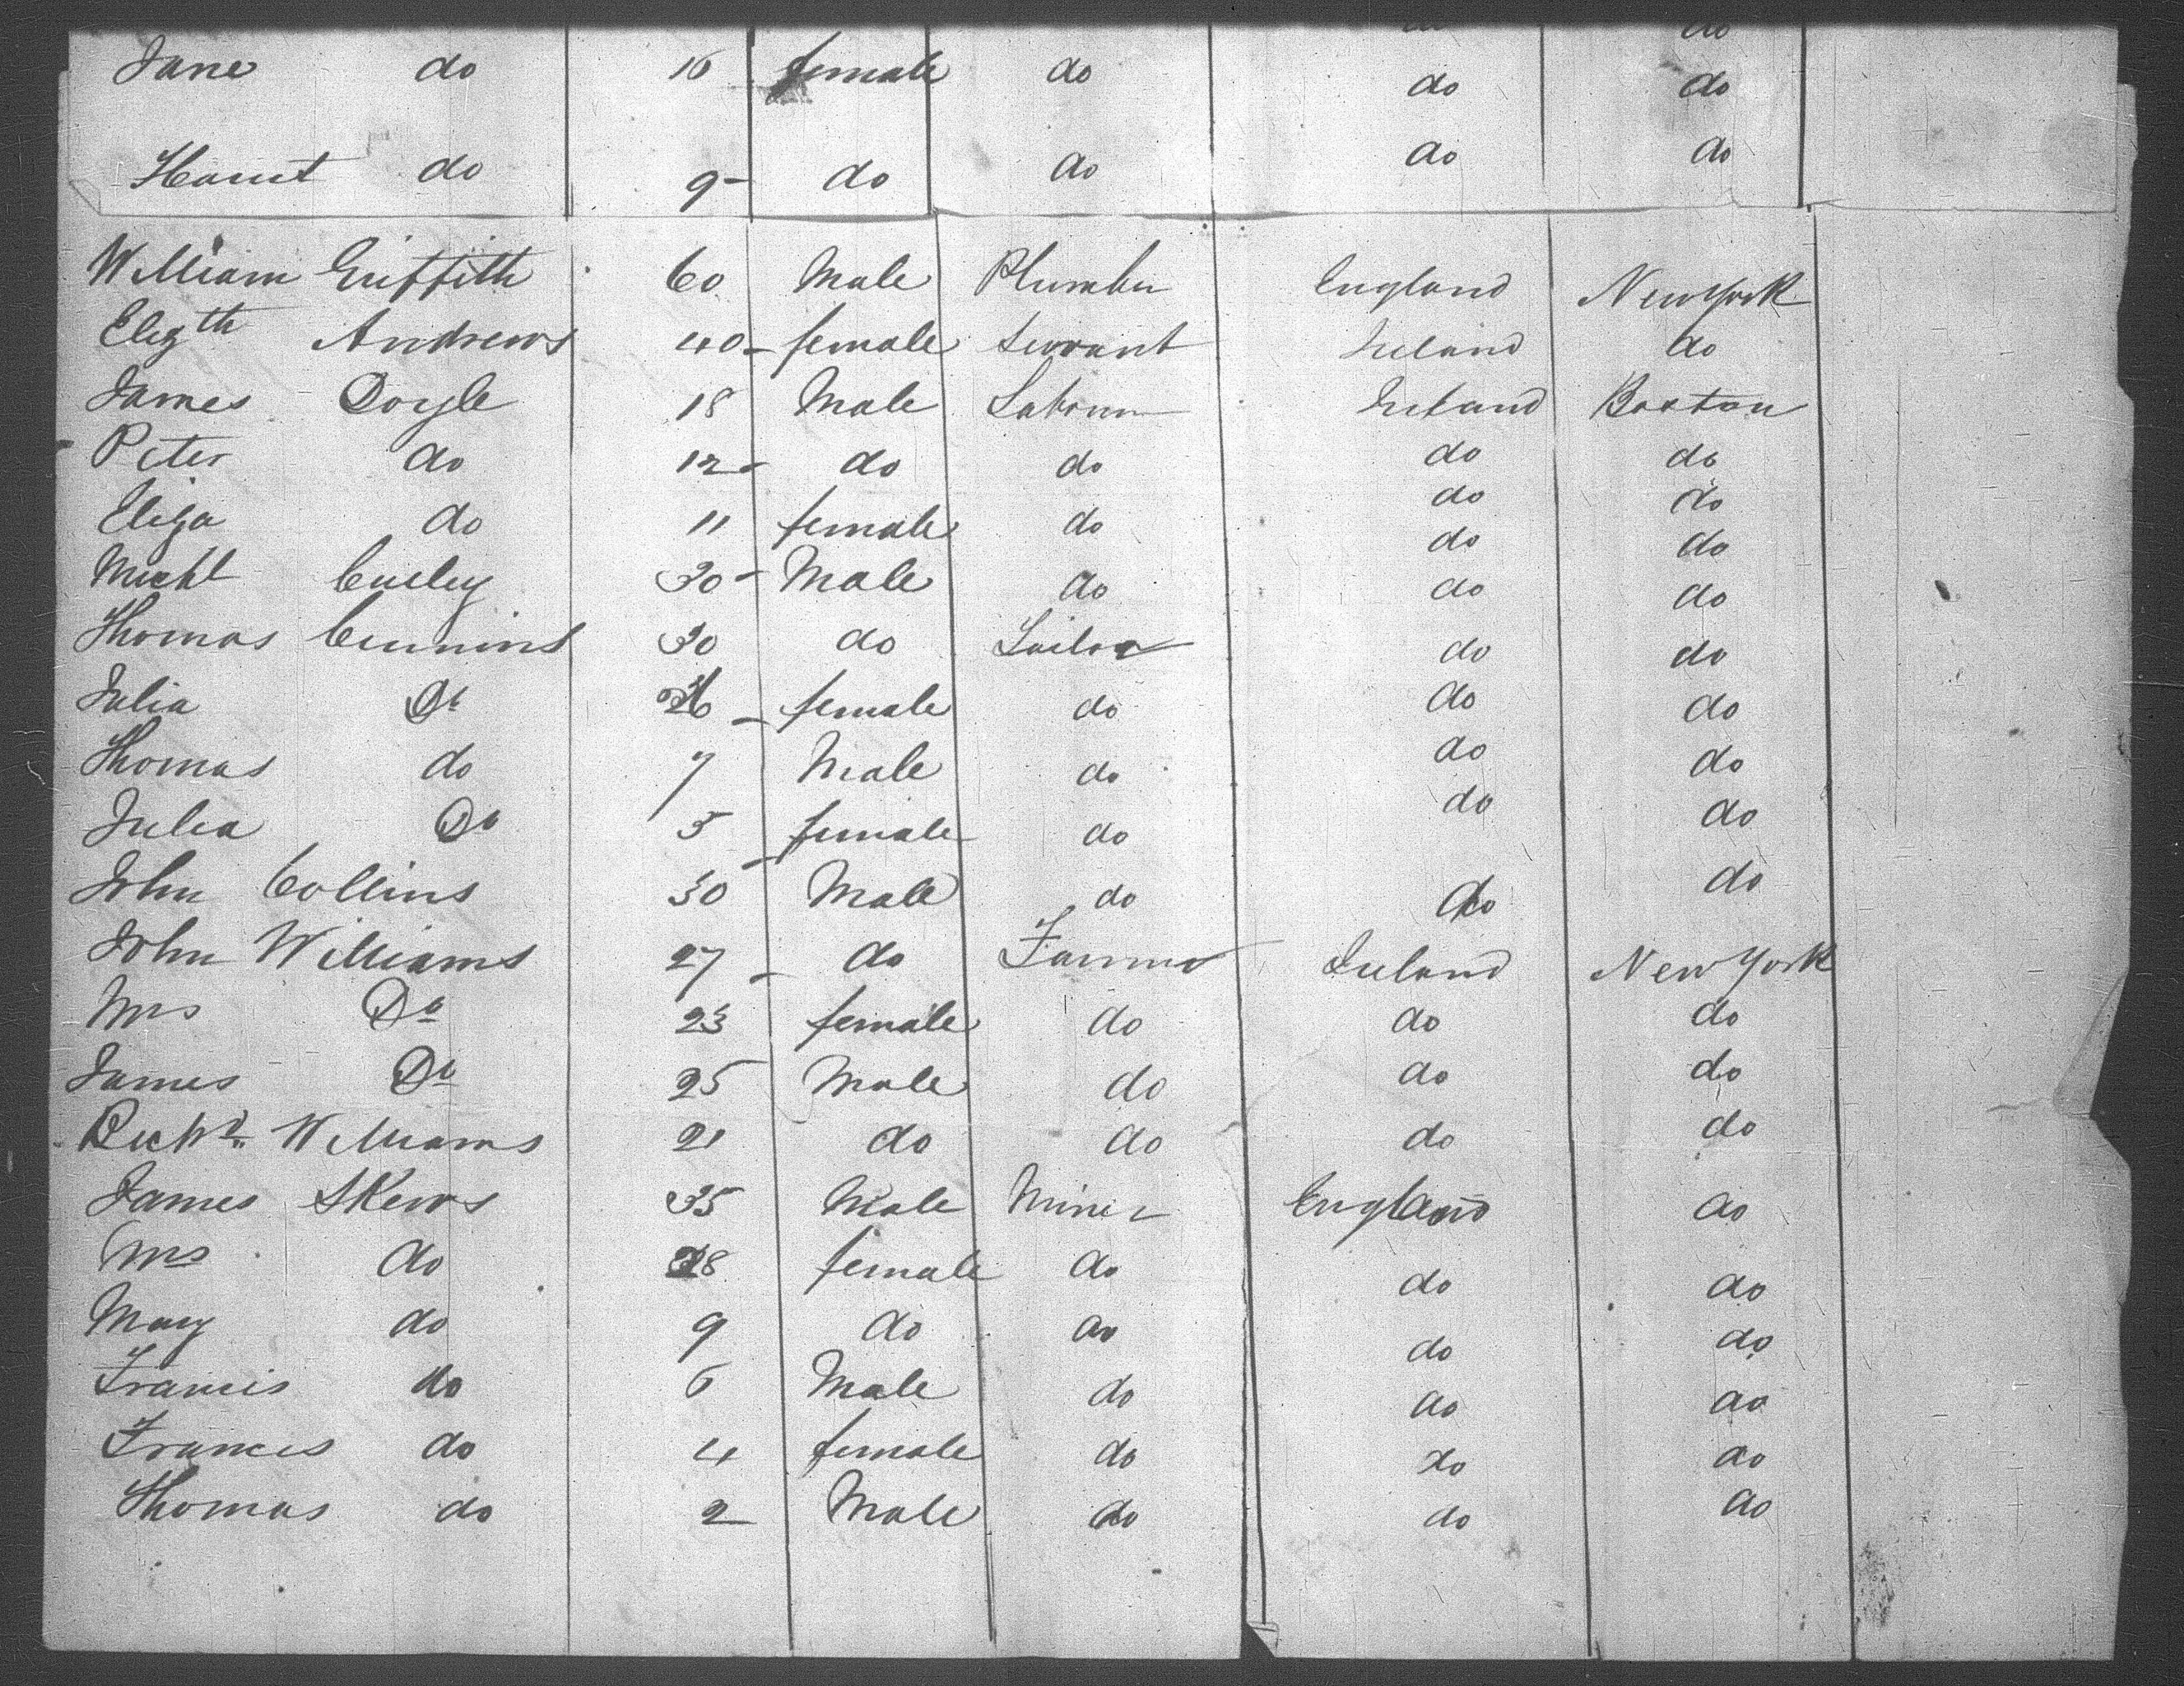 do
Jane do 16 female do do do
Harriet do 9 do do do do
William Griffith 60 Male Plumber England New York
Elizth Andrews 40 female Servant Ireland do
James Doyle 18 Male Labourer Ireland Boston
Peter do 12 do do do do
Eliza do 11 female do do do
Michl Curley 30 Male do do do
Thomas Cummins 30 do do do
Julia Do 26 female do do do
Thomas do 7 Male do do do
Julia Do 5 female do do do
John Collins 30 Male do do do
John Williams 27 do Farmer Ireland New York
Mrs Do 23 female do do do
James Do 25 Male do do do
Richd Williams 21 do do do do
James Skews 35 Male Miner England do
Mrs do 28 female do do do
Mary do 9 do do do do
Francis do 6 Male do do do
Frances do 4 female do do do
Thomas do 2 Male do do do